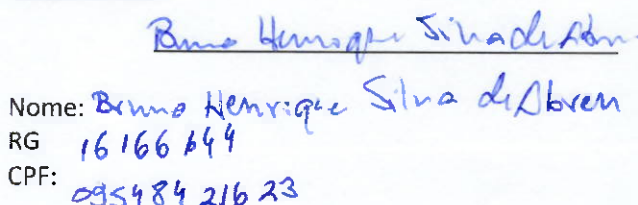 Bruno Henrique Silva de Abreu
Nome: Bruno Henrique Silva de Abreu
RG 16166644
CPF: 09548421623